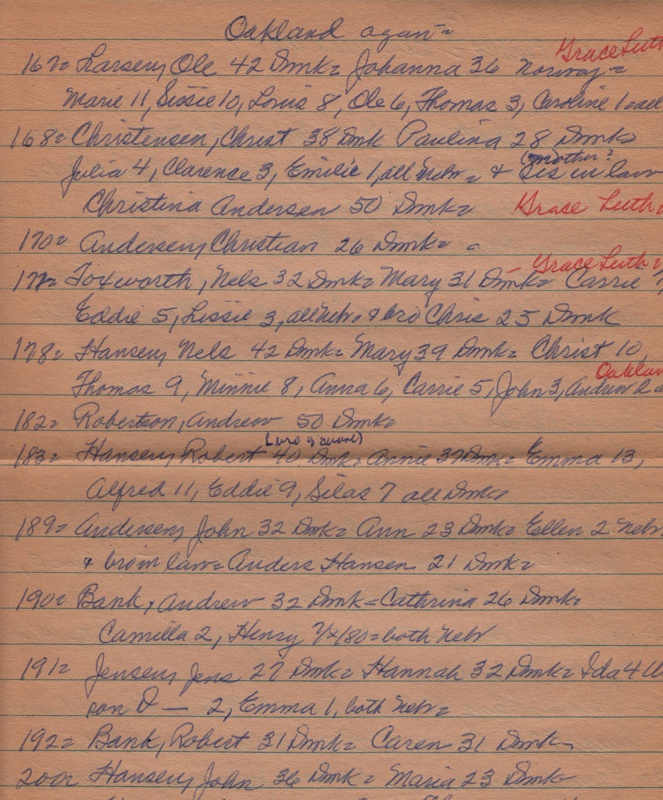 Oakland again =
Grace Luth
167= Larsen, Ole 42 Dmk= Johanna 36 Norway=
Marie 11, Sissie 10, Louis 8, Ole 6, Thomas 3, Caroline 1 all
168= Christensen, Christ 38 Dmk Paulina 28 Dmk=
(mother?
Julia 4, Clarence 3, Emilie 1, all Nebr= & Sis in law
Christina Andersen 50 Dmk= Grace Luth=
170= Andersen, Christian 26 Dmk=
Grace Luth=
Foxworth, Nels 32 Dmk= Mary 31 Dmk= Carrie
Eddie 5, Lissie 3, all Nebr & bro Chris 25 Dmk
178= Hansen, Nels 42 Dmk= Mary 39 Dmk= Christ 10,
Oaklan
Thomas 9, Minnie 8, Anna 6, Carrie 5, John 3, Andrew
182= Robertson, Andrew 50 Dmk=
183= Hansen, Robert 40 Dmk= Annie 37 Dmk= Emma 13,
Alfred 11, Eddie 9, Silas 7 all Dmk=
189= Andersen, John 32 Dmk= Ann 23 Dmk= Ellen 2 Nebr
& bro in law= Anders Hansen 21 Dmk=
190= Bank, Andrew 32 Dmk= Cathrina 26 Dmk=
Camilla 2, Henry 7/1/80= both Nebr
191= Jensen, Jens 27 Dmk= Hannah 32 Dmk= Ida 4
son O — 2, Emma 1, both Nebr=
192= Bank, Robert 31 Dmk= Caren 31 Dmk=
200= Hansen, John 36 Dmk= Maria 23 Dmk=